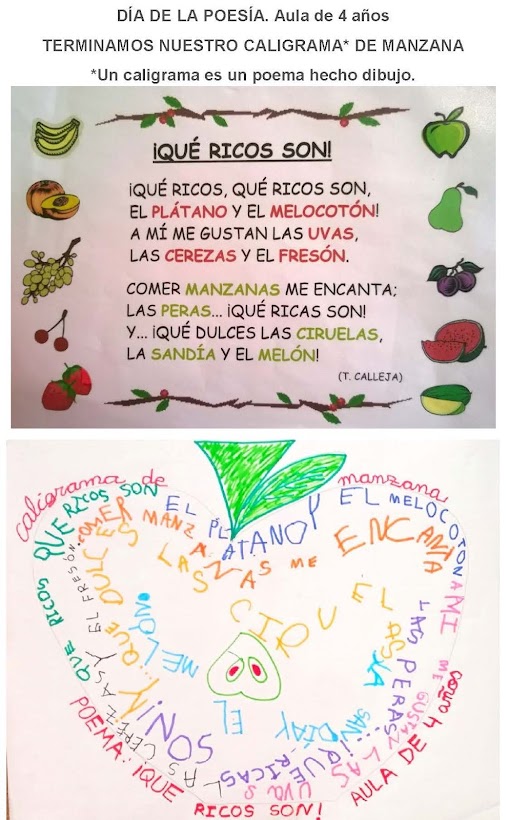 DÍA DE LA POESÍA. Aula de 4 años
TERMINAMOS NUESTRO CALIGRAMA* DE MANZANA
*Un caligrama es un poema hecho dibujo.
¡QUÉ RICOS SON!
¡QUÉ RICOS, QUÉ RICOS SON,
EL PLÁTANO Y EL MELOCOTÓN!
A MÍ ME GUSTAN LAS UVAS,
LAS CEREZAS Y EL FRESÓN.
COMER MANZANAS ME ENCANTA;
LAS PERAS... ¡QUÉ RICAS SON!
Y... ¡QUÉ DULCES LAS CIRUELAS,
LA SANDÍA Y EL MELÓN!
(T. CALLEJA)
caligrama de manzana
QUE RICOS QUE RICOS SON
EL PLATANO Y EL MELOCOTON
A MI ME GUSTAN LAS UVAS
LAS CEREZAS Y EL FRESÓN.
COMER MANZANAS ME
LAS PERAS... ¡QUE RICAS SON!
Y.. ¡QUE DULCES LAS CIRUELAS
LA SANDIA Y EL MELON
POEMA: ¡QUE RICOS SON!
AULA DE 4 años